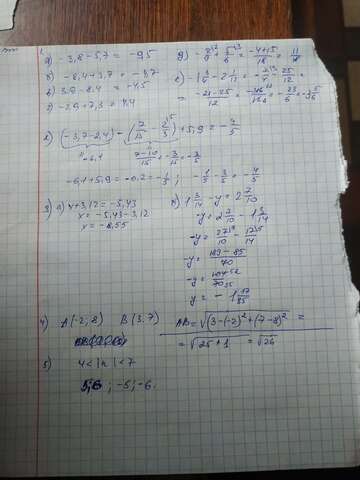 1.
а) -3,8-5,7 = -9,5
б) -8,4+3,7 = -4,7
в) 3,9-8,4 = -4,5
г) -2,9+7,3 = 4,4
д) -2/9 + 5/6 = (-4+15)/18 = 11/18
е) -1 3/4 - 2 1/12 = -7/4 - 25/12 =
= (-21-25)/12 = -46/12 = -23/6 = -3 5/6
2) (-3,7-2,4) - (7/15 - 2/3) + 5,9 = -4/5
-6,1
(7-10)/15 = -3/15 = -1/5
-6,1+5,9 = -0,2 = -1/5 ;
3) а) x+3,12 = -5,43
x = -5,43-3,12
x = -8,55
б) 1 3/14 - y = 2 7/10
-y = 2 7/10 - 1 3/14
-y = 27/10 - 17/14
-y = (189-85)/70
-y = 104/70
y = -1 17/35
4) A(-2; 8) B(3; 7)
AB = √((3-(-2))²+(7-8)²) =
= √(25+1) = √26
5) 4 < |a| < 7
5; 6 ; -5; -6.